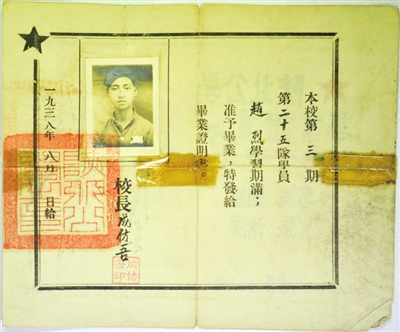 本校第三期
第二十五隊學員
趙烈學習期滿，
准予畢業，特發給
畢業證明書。
校長成仿吾
一九三八年八月 日給